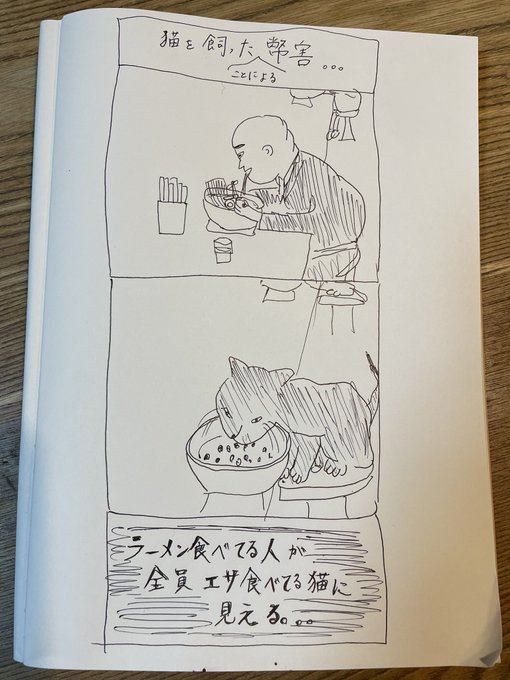 猫を飼った弊害...
ことによる
ラーメン食べてる人が
全員エサ食べてる猫に
見える。...